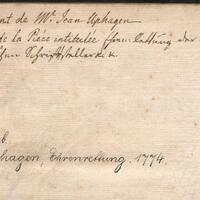 nt de Mr. Jean Uphagen
de la Piéce intitulée Ehrenrettung der
chen Schriftstellerek
b.
hagen, Ehrenrettung. 1774.